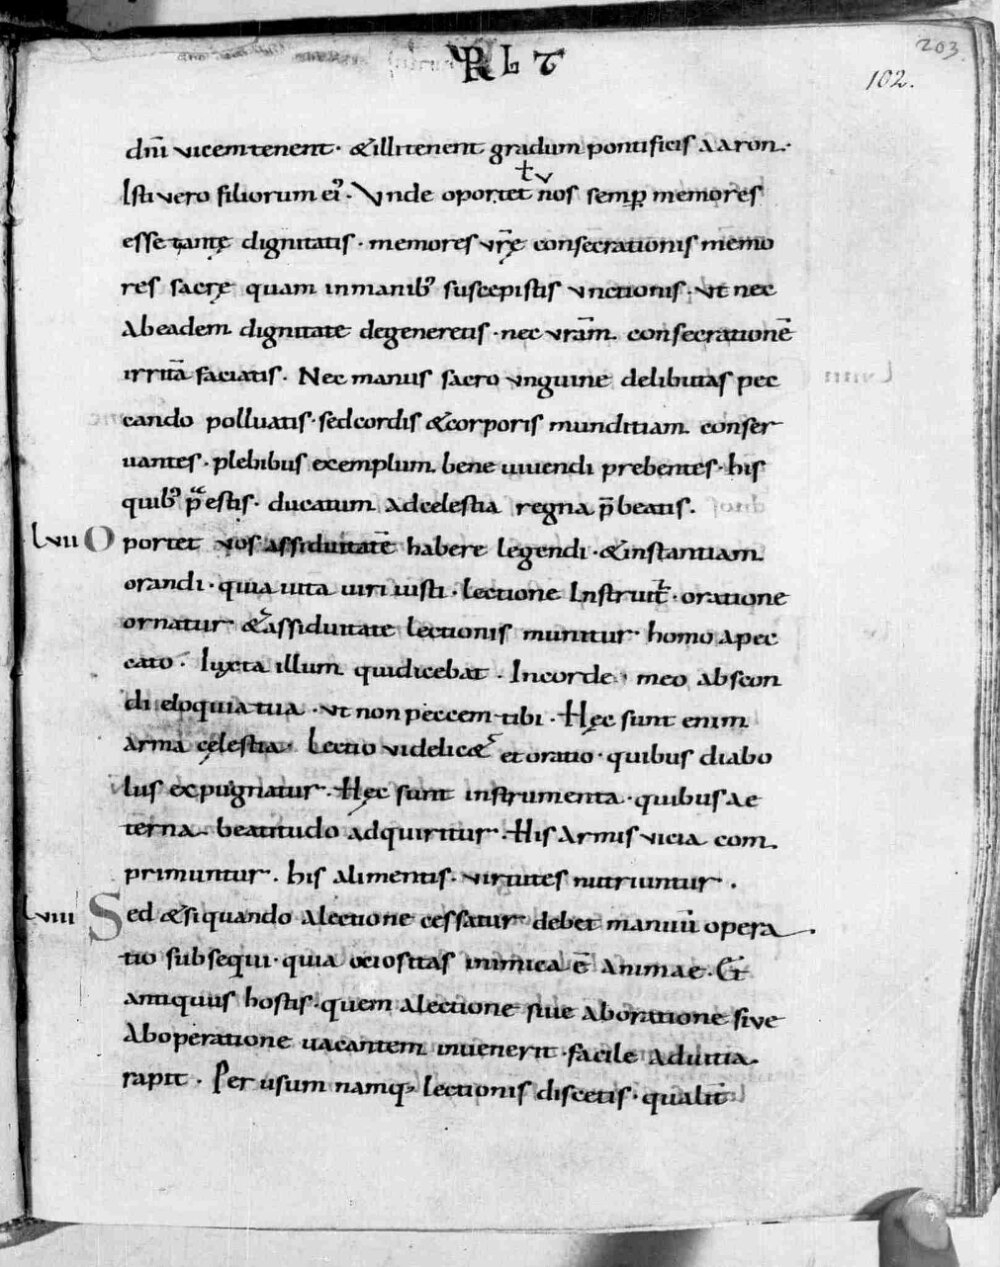 203
102.
PRLT
dñi vicem tenent · & illi tenent gradum pontificis aaron ·
Isti vero filiorum eiꝰ · Vnde oportet nos semp memores
esse tantę dignitatis · memores vr̃ę consecrationis memo
res sacrę quam in manibꝰ suscepistis vnctionis · vt nec
ab eadem dignitate degeneretis · nec vrãm consecrationē
irritā faciatis · Nec manus sacro vnguine delibutas pec
cando polluatis · sed cordis & corporis munditiam conser
uantes · plebibus exemplum bene uiuendi prebentes · his
quibꝰ p̃estis · ducatum ad celestia regna p̃beatis .
lvii Oportet vos assiduitatē habere legendi · & instantiam
orandi · quia uita uiri iusti · lectione Instruit᷒ · oratione
ornatur · & assiduitate lectionis munitur · homo a pec
cato · Iuxta illum qui dicebat · In corde meo abscon
di eloquia tua · vt non peccem tibi · Hęc sunt enim
arma cęlestia · Lectio videlic& et oratio · quibus diabo
lus expugnatur · Hęc sunt instrumenta · quibus ae
terna beatitudo adquiritur · His armis vicia com
primuntur · his alimentis · virtutes nutriuntur ·
lviii Sed & si quando a lectione cessatur debet manuū opera
tio subsequi · quia ociositas inimica ē animae · Et
antiquus hostis · quem a lectione siue ab oratione sive
ab operatione uacantem inuenerit · facile ad uitia
rapit · Per usum namq; lectionis discetis · qualit̄